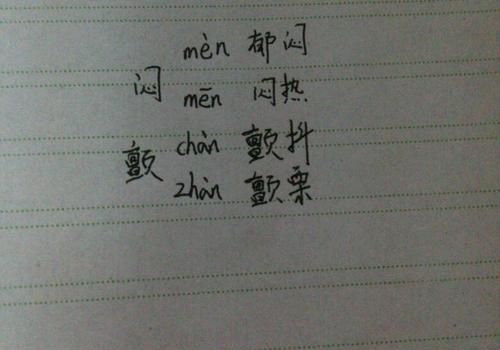 mèn 郁闷
闷
mēn 闷热
chàn 颤抖
颤
zhàn 颤栗